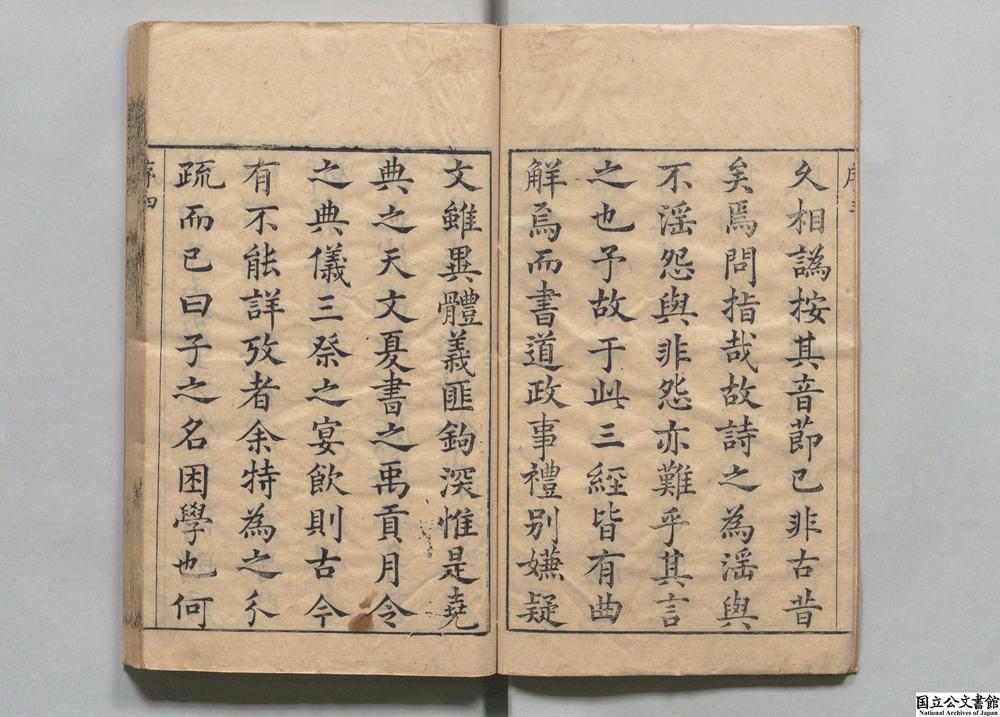 久相譌按其音節已非古昔
矣焉問指哉故詩之為淫與
不淫怨與非怨亦難乎其言
之也予故于此三經皆有曲
解焉而書道政事禮別嫌疑
文雖異體義匪鈎深惟是堯
典之天文夏書之禹貢月令
之典儀三祭之宴飲則古今
有不能詳攷者余特為之分
疏而已曰子之名困學也何
序四
国立公文書館
National Archives of Japan